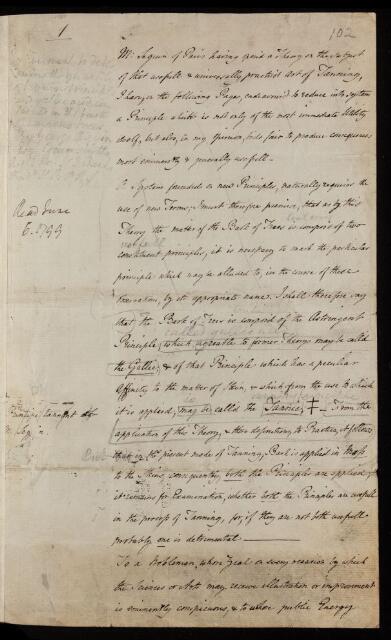 1
102
Mr. Seguin of Paris having given a Theory on the subject
of that usefull & universally practised art of Tanning,
I have, in the following Pages, endeavored to reduce into system
a Principle which is not only of the most immediate Utility
itself, but also, in my Opinion, bids fair to produce consequences
most eminently & generally usefull.
A System founded on new Principles, naturally requires the
use of new Terms; I must therefore premise, that as by this
Theory the matter of the Bark of Trees is composed of two
constituent principles, it is necessary to mark the particular
principle which may be allowed to, in the course of these
by its appropriate name. I shall therefore say
that, the Bark of Trees is composed of the Astringent
Principle, which agreeable to former Theory may be called
the Gallic; & of that Principle which has a peculiar
affinity to the matter of Skin, & which from the use to which
it is applied, may be called the Tannic, ‡ From the
application of this Theory, & other to Practice, it follows,
that in the present mode of Tanning, Bark is applied in Mass
to the Skins, consequently, both the Principles are applied;
it remains for Examination, whether both the Principles are usefull
in the process of Tanning, for, if they are not both usefull
probably one is detrimental.
To a Nobleman, whose Zeal on every occasion by which
the Sciences or Arts may receive illustration or improvement
is eminently conspicuous, & to whose public Energy
Read June
6. 1799